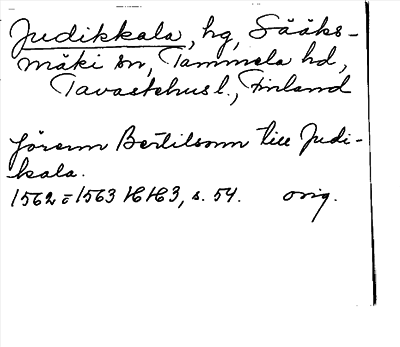 Judikkala, hg, Sääks-
mäki sn, Tammela hd,
Tavastehus l., Finland
Jörenn Bertilsonn till Judi-
kala.
1562 = 1563 HH3, s. 54. orig.